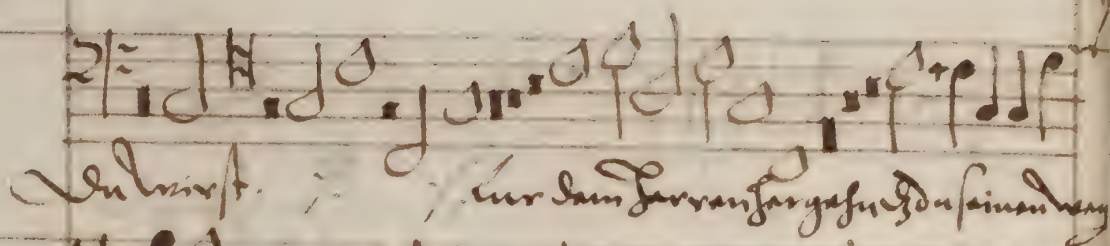 Du wirst. ⁒ ⁒ fur dem Herren hergehn dz du seinen weg